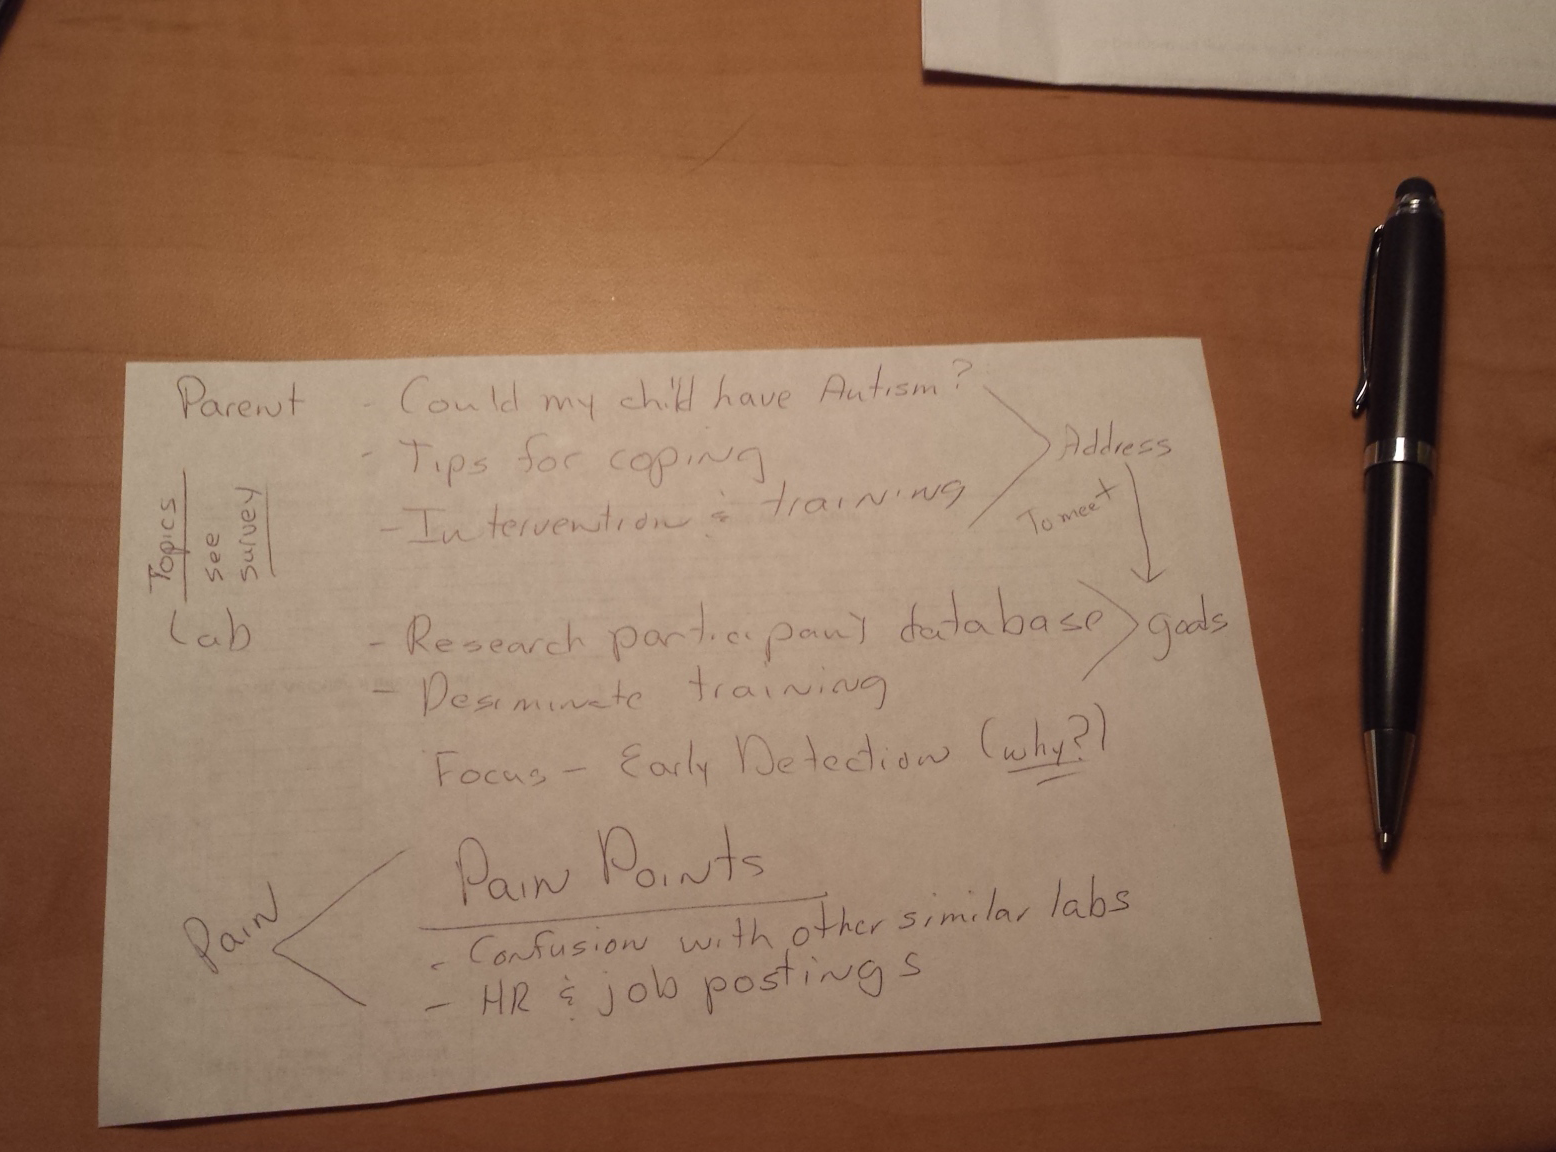 Parent - Could my child have Autism?
- Tips for coping
- Intervention & training
Address
To meet
Topics
see
survey
Lab - Research participant database
goals
- Desiminate training
Focus - Early Detection (why?)
Pain
Pain Points
- Confusion with other similar labs
- HR & job postings